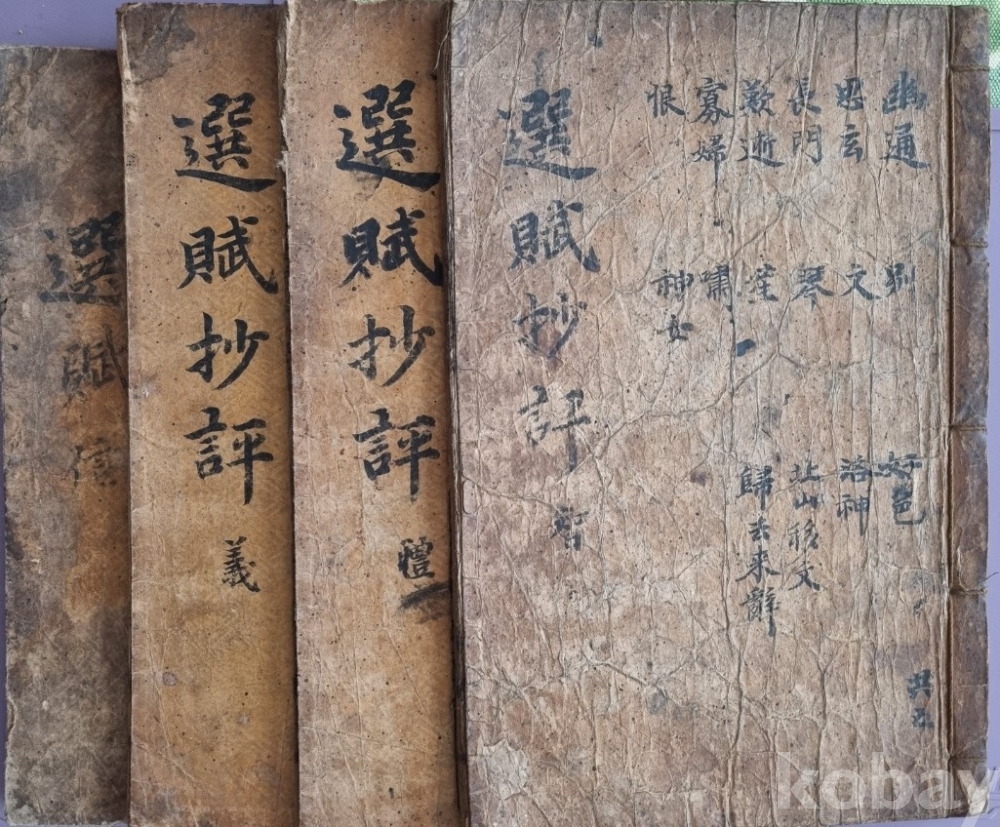 幽通 別 好色
思玄 文 洛神
長門 琴 北山移文
歎逝 笙 歸去来辭
寡婦 嘯
恨 神女
共五
選賦抄評 智
選賦抄評 禮
選賦抄評 義
選賦 信
kobay